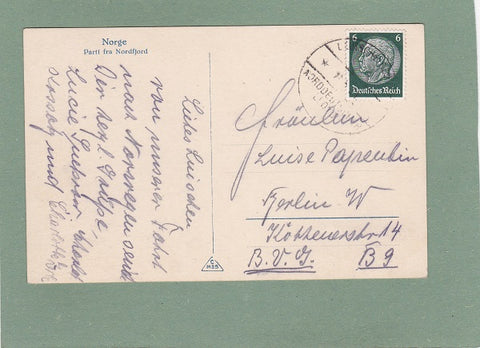 Norge
Parti fra Nordfjord
Liebes Luischen
von unserer Fahrt
nach Norwegen senden
Dir herzl. Grüsse,
Lucie
und Charlotte
6 6
Deutsches Reich
Fräulein
Luise Papenbin
Berlin W
Köthenerstr 14
B.V.G. B9